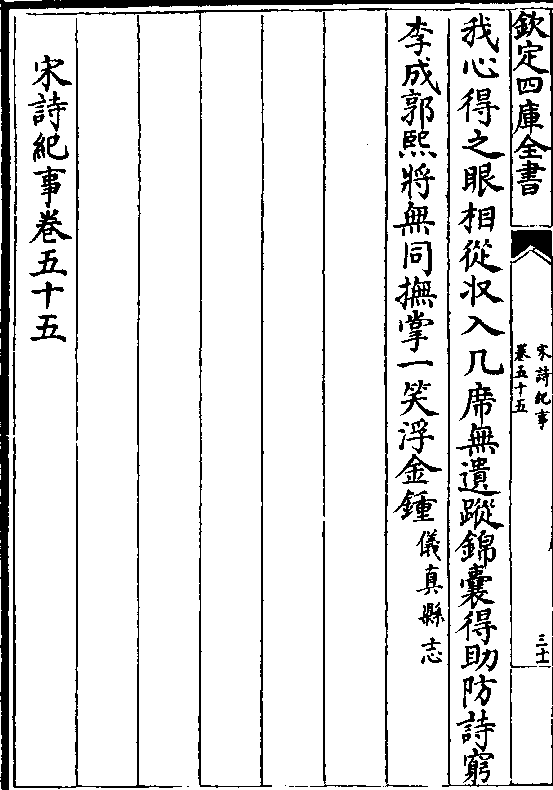 欽定四庫全書
宋詩紀事
卷五十五
三十一
我心得之眼相從収入几席無遺蹤錦囊得助防詩窮
李成郭熙將無同撫掌一笑浮金鍾儀真縣志
宋詩紀事卷五十五